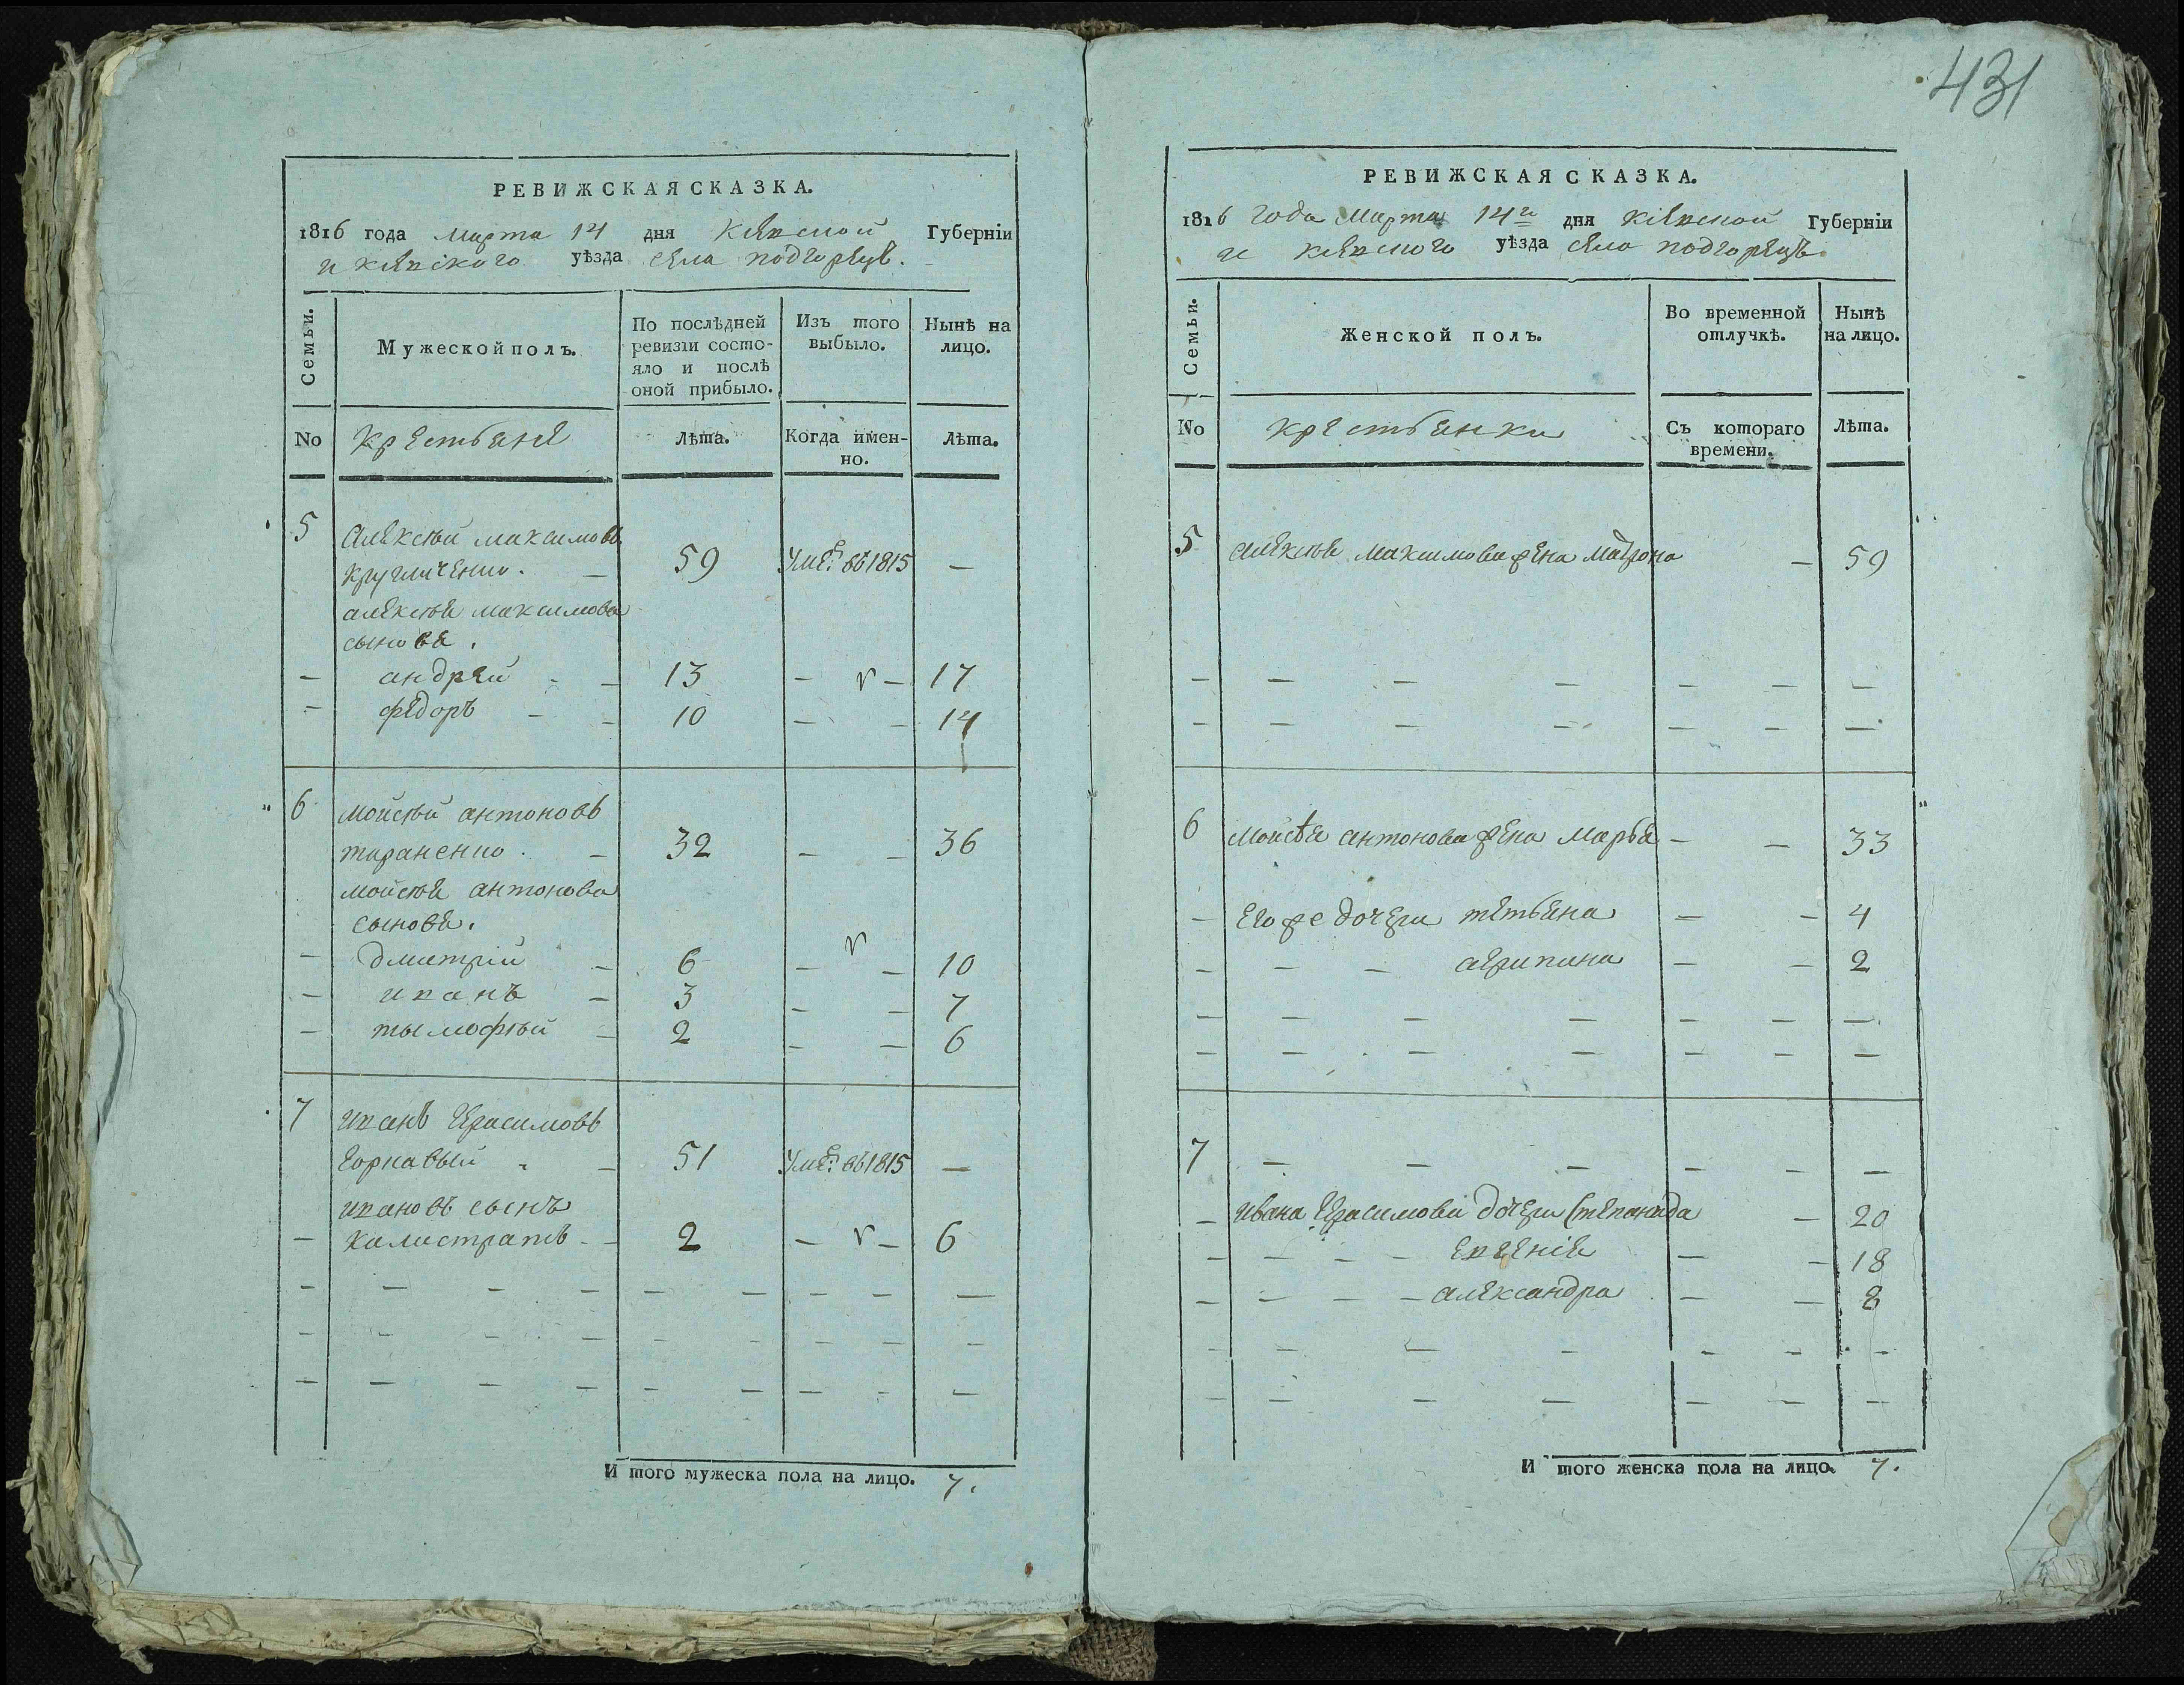 431
РЕВИЖСКАЯ СКАЗКА.
1816 года марта 14 дня Кіевской Губерніи
и Кіевского уѣзда села подгорецъ.
Семьи.
Мужеской полъ.
По послѣдней ревизіи состо-
яло и послѣ
оной прибыло.
Изъ того
выбыло.
Нынѣ на
лицо.
No
крестьяне
Лѣта.
Когда имен-
но.
Лѣта.
5 Алексѣй максимовъ
59 Уме: въ 1815 —
алексѣя максимова
сыновя.
— андрей - — 13 — — 17
— федоръ — — 10 — — 14
6 мойсѣй антоновъ
тараненко. — 32 — — 36
мойсѣя антонова
сыновя.
— дмитрій — 6 — — 10
— иванъ — 3 — — 7
— тымофѣй — 2 — — 6
7 иванъ герасимовъ
51 Уме: въ 1815 —
ивановъ сынъ
— калистратъ - — 2 — — 6
— — — — — — — — — —
— — — — — — — — — —
— — — — — — — — — —
И того мужеска пола на лицо. 7.
РЕВИЖСКАЯ СКАЗКА.
1816 года марта 14го дня кіевской Губерніи
и кіевского уѣзда села подгорецъ.
Семьи.
Женской полъ.
Во временной
отлучкѣ.
Нынѣ
на лицо.
No
крестьянки
Съ котораго
времени.
Лѣта.
5 алексѣя максимова жена матрона — 59
— — — — — — —
— — — — — — —
6 мойсѣя антонова жена марья — — 33
— его же дочери тетьяна — — 4
— — — агрипина — — 2
— — — — — — —
— — — — — — —
7 — — — — — —
— ивана герасимова дочери степанида — 20
— — — — евгенія — — 18
— — — — александра — — 8
— — — — — — —
— — — — — — —
И того женска пола на лицо. 7.